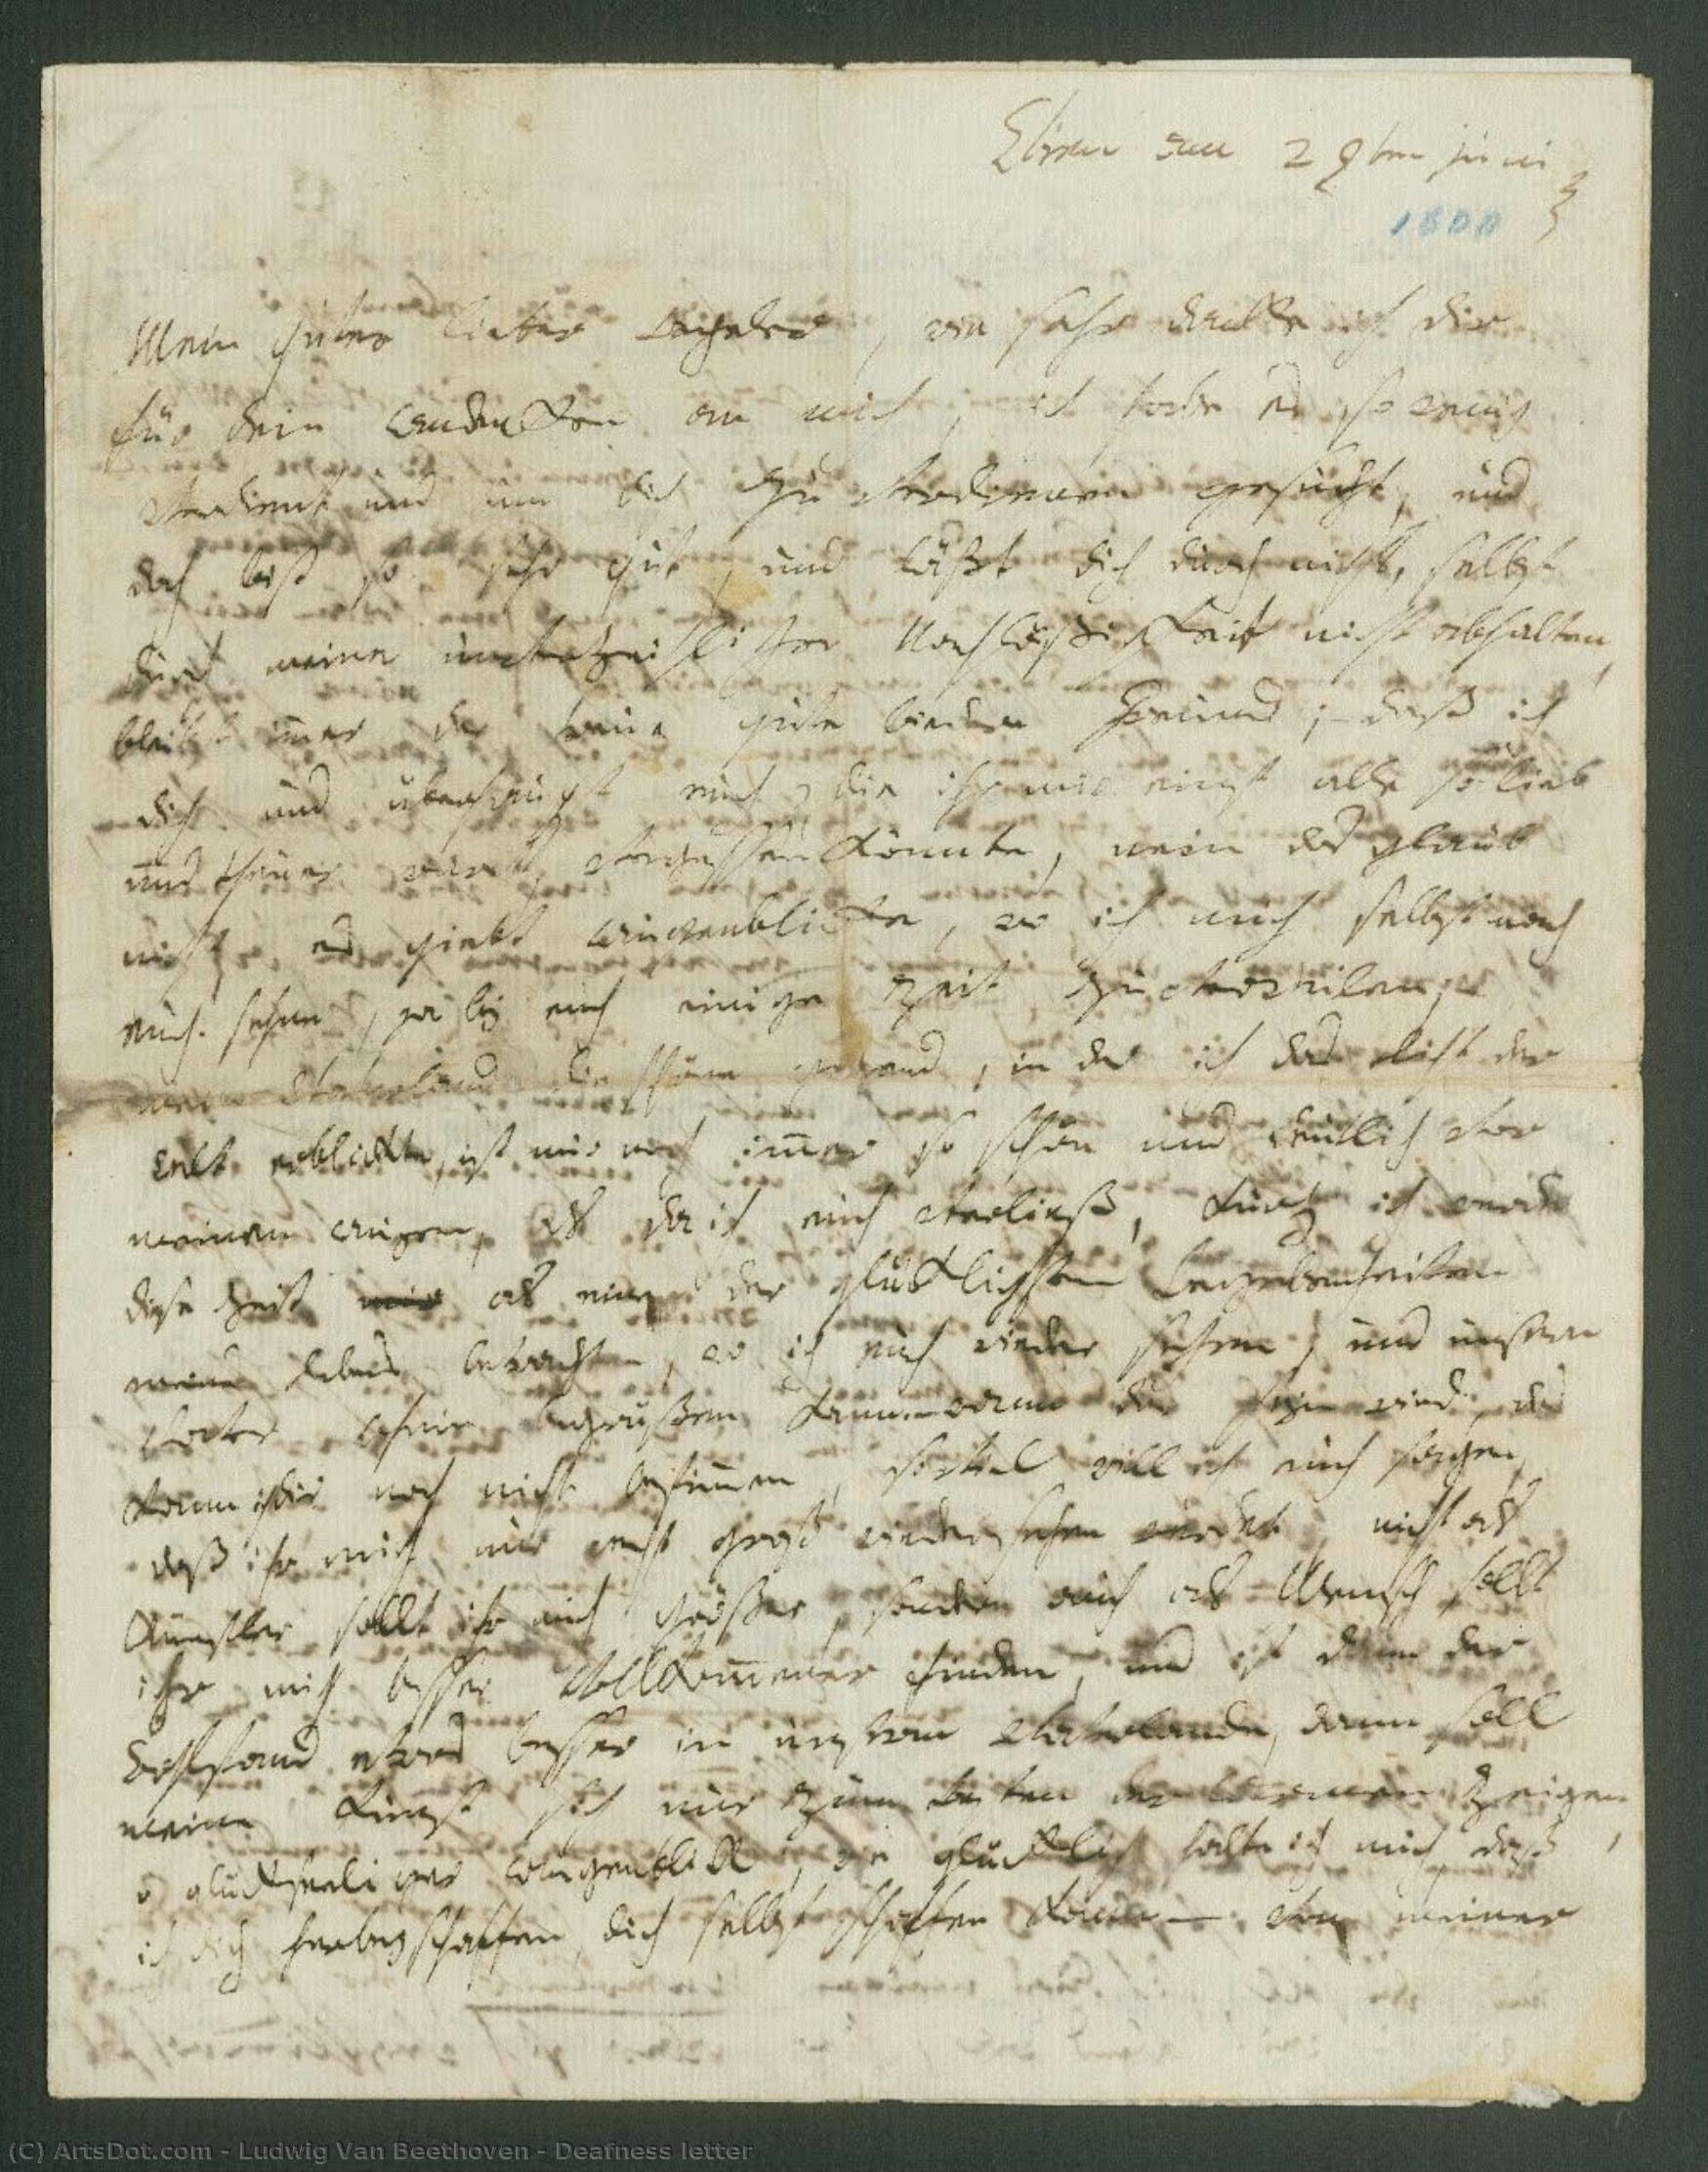 Vien den 29ten juni
1800
Mein guter lieber Wegeler, wie sehr danke ich dir
für dein Andenken an mich, ich habe es so wenig
verdient und um dich zu verdienen gesucht, und
doch bist so sehr gut, und läßt dich durch nichts, selbst
durch meine unverzeihliche Nachläßigkeit nicht abhalten,
bleibst imer der treue gute biedere Freund; daß ich
dich und überhaupt euch, die ihr mir einst alle so lieb
und theuer waret, vergessen könnte, nein das glaubt
nicht, es giebt augenblicke, wo ich mich selbst nach
euch sehne, ja bej euch einige Zeit zu verweilen,
mein Vaterland die schöne gegend, in der ich das licht der
welt erblickte, ist mir noch imer so schön und deutlich vor
meinen augen, als da ich euch verließ, kurz ich werde
diese Zeit als eine der glücklichsten begebenheiten
meines lebens betrachten, wo ich euch wieder sehen, und unsern
Vater rhein begrüßen kann. wann dies sejn wird, das
kann ich dir noch nicht bestimen, soviel will ich euch sagen,
daß ihr mich nur recht groß wiedersehen werdet, nicht als
Künstler sollt ihr mich größer, sondern auch als Mensch sollt
ihr mich besser Vollkomener finden, und ist dann der
wohlstand etwas besser in unserm Vaterlande, dann soll
meine Kunst sich nur zum besten der armen zeigen,
o glückseeliger augenblick, wie glücklich halte ich mich, daß
ich dich herbejschaffen, dich selbst schaffen kann — von meiner
(C) ArtsDot.com - Ludwig Van Beethoven - Deafness letter